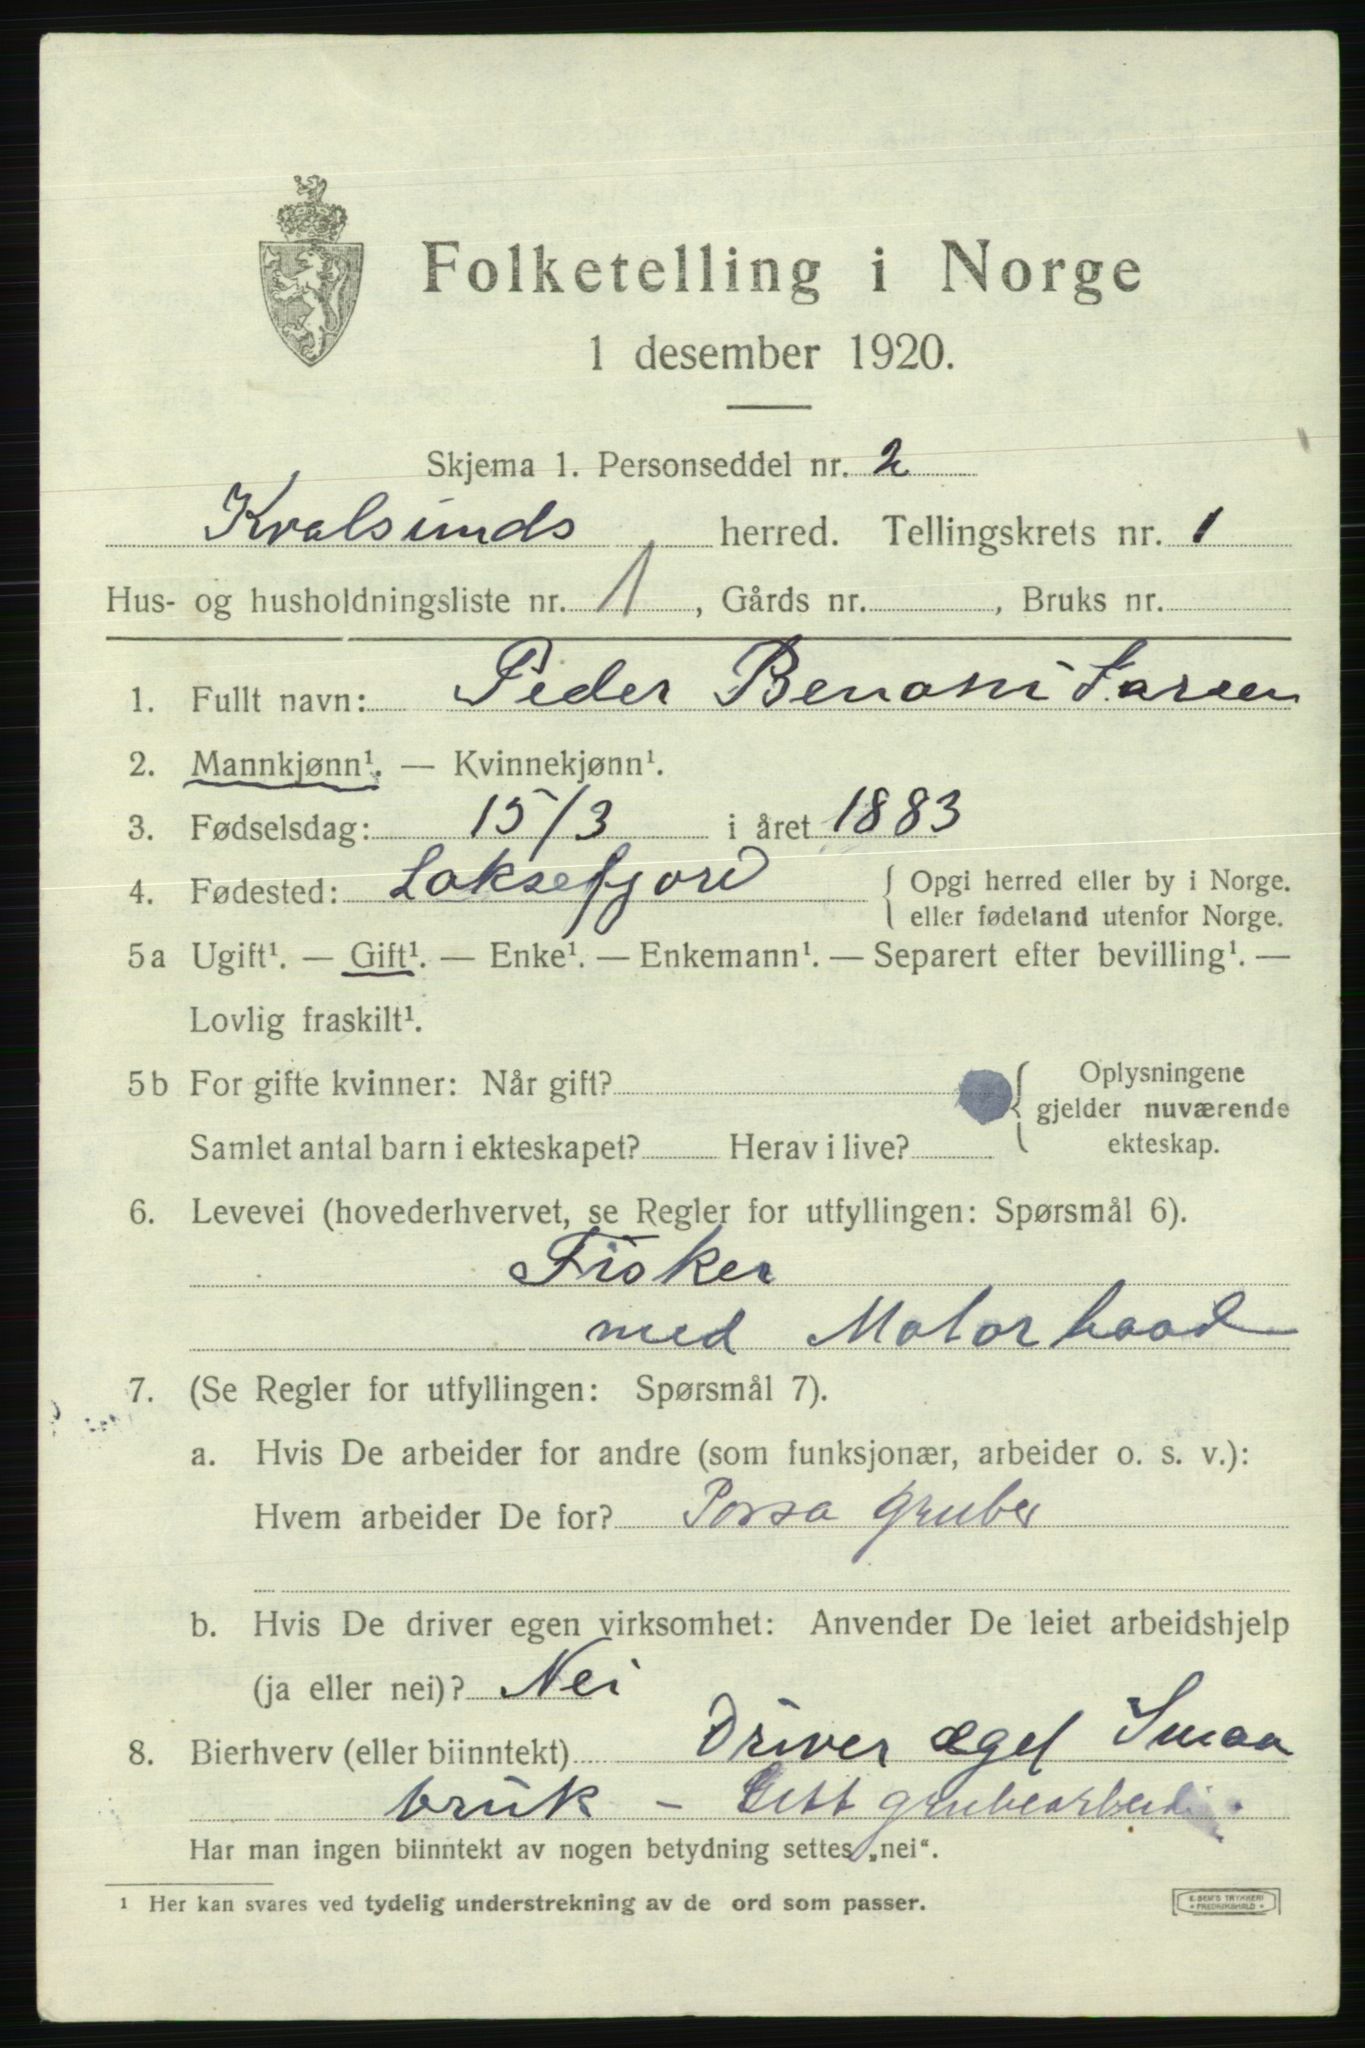 Folketelling i Norge
1 desember 1920.
Skjema 1. Personseddel nr. 2
Kvalsunds herred. Tellingskrets nr. 1
Hus- og husholdningsliste nr. 1, Gårds nr. , Bruks nr.
1. Fullt navn: Peder Benoni Larsen
2. Mannkjønn¹. — Kvinnekjønn¹.
3. Fødselsdag: 15/3 i året 1883
4. Fødested: Laksefjord { Opgi herred eller by i Norge.
eller fødeland utenfor Norge.
5a Ugift¹. — Gift¹. — Enke¹. — Enkemann¹. — Separert efter bevilling¹. —
Lovlig fraskilt¹.
5b For gifte kvinner: Når gift? { Oplysningene
gjelder nuværende
Samlet antal barn i ekteskapet? Herav i live? ekteskap.
6. Levevei (hovederhvervet, se Regler for utfyllingen: Spørsmål 6).
Fisker
med Motorbaad
7. (Se Regler for utfyllingen: Spørsmål 7).
a. Hvis De arbeider for andre (som funksjonær, arbeider o. s. v.):
Hvem arbeider De for? Porsa gruber
b. Hvis De driver egen virksomhet: Anvender De leiet arbeidshjelp
(ja eller nei)? Nei
8. Bierhverv (eller biinntekt) Driver eget Smaa
bruk – litt grubearbeid
Har man ingen biinntekt av nogen betydning settes „nei“.
¹ Her kan svares ved tydelig understrekning av de ord som passer.
E. SEM'S TRYKKERI
FREDRIKSHALD